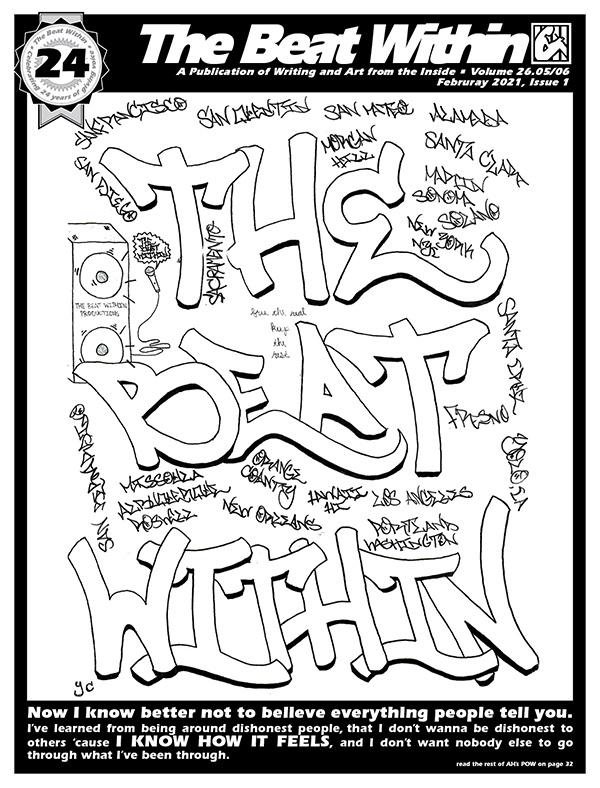 The Beat Within
Celebrating 24 years of giving voice
24
The Beat Within
A Publication of Writing and Art from the Inside • Volume 26.05/06
Februray 2021, Issue 1
SAN FRANCISCO
SAN QUENTIN
SAN MATEO
ALAMEDA
MORGAN
HILL
SANTA CLARA
SAN DIEGO
MARTIN
SONOMA
SOLANO
NEW YORK
NYC
SACRAMENTO
THE
THE
BEAT
WITHIN
THE BEAT WITHIN
PRODUCTIONS
Give the real
Rep
the
rest
SANTA CRUZ
BEAT
FRESNO
MISSOULA
ALBUQUERQUE
ROSWELL
ORANGE
COUNTY
NEW ORLEANS
HAWAII
HI
LOS ANGELES
PORTLAND
WASHINGTON
WITHIN
yc
Now I know better not to believe everything people tell you.
I've learned from being around dishonest people, that I don't wanna be dishonest to
others 'cause I KNOW HOW IT FEELS, and I don't want nobody else to go
through what I've been through.
read the rest of AH's POW on page 32